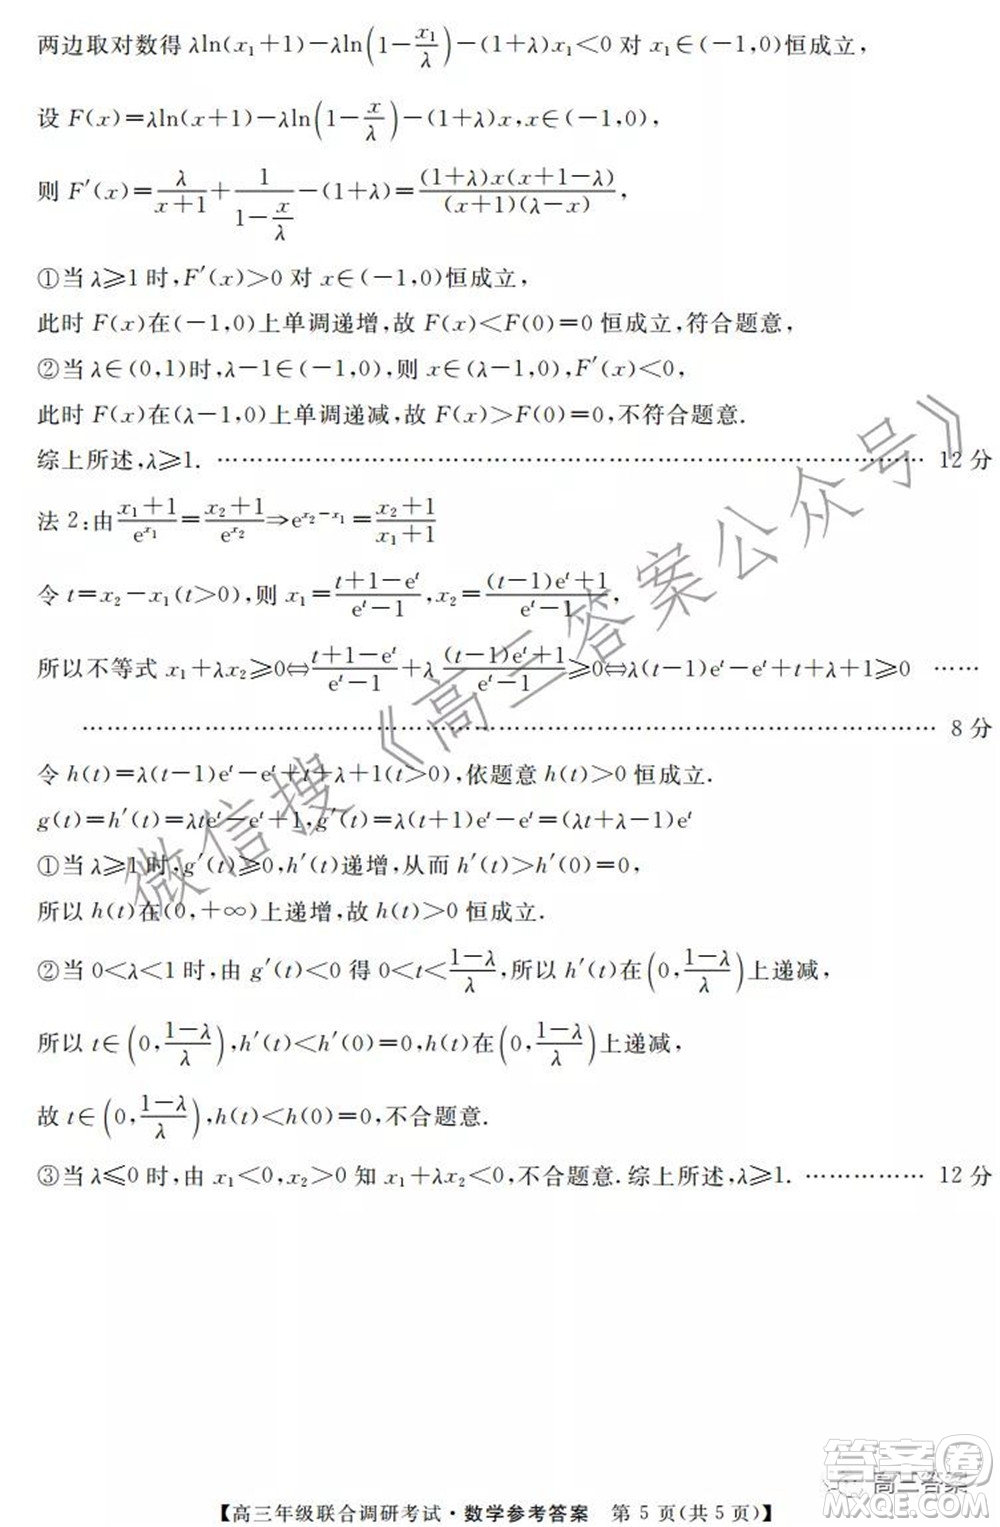 两边取对数得 λln(x₁+1)−λln(1−x₁/λ)−(1+λ)x₁<0 对 x₁∈(−1,0)恒成立,
设 F(x)=λln(x+1)−λln(1−x/λ)−(1+λ)x,x∈(−1,0),
则 F′(x)=λ/(x+1)+1/(1−x/λ)−(1+λ)=(1+λ)x(x+1−λ)/((x+1)(λ−x)),
①当 λ⩾1 时,F′(x)>0 对 x∈(−1,0)恒成立,
此时 F(x)在(−1,0)上单调递增,故 F(x)<F(0)=0 恒成立,符合题意,
②当 λ∈(0,1)时,λ−1∈(−1,0),则 x∈(λ−1,0),F′(x)<0,
此时 F(x)在(λ−1,0)上单调递减,故 F(x)>F(0)=0,不符合题意.
综上所述,λ⩾1. …… 12 分
法 2:由(x₁+1)/e^{x₁}=(x₂+1)/e^{x₂}⇒e^{x₂−x₁}=(x₂+1)/(x₁+1)
令 t=x₂−x₁(t>0),则 x₁=(t+1−e^t)/(e^t−1),x₂=((t−1)e^t+1)/(e^t−1),
所以不等式 x₁+λx₂⩾0⇔(t+1−e^t)/(e^t−1)+λ((t−1)e^t+1)/(e^t−1)⩾0⇔λ(t−1)e^t−e^t+t+λ+1⩾0 ……
…… 8 分
令 h(t)=λ(t−1)e^t−e^t+t+λ+1(t>0),依题意 h(t)>0 恒成立.
g(t)=h′(t)=λte^t−e^t+1,g′(t)=λ(t+1)e^t−e^t=(λt+λ−1)e^t
①当 λ⩾1 时,g′(t)⩾0,h′(t)递增,从而 h′(t)>h′(0)=0,
所以 h(t)在(0,+∞)上递增,故 h(t)>0 恒成立.
②当 0<λ<1 时,由 g′(t)<0 得 0<t<(1−λ)/λ,所以 h′(t)在(0,(1−λ)/λ)上递减,
所以 t∈(0,(1−λ)/λ),h′(t)<h′(0)=0,h(t)在(0,(1−λ)/λ)上递减,
故 t∈(0,(1−λ)/λ),h(t)<h(0)=0,不合题意.
③当 λ⩽0 时,由 x₁<0,x₂>0 知 x₁+λx₂<0,不合题意.综上所述,λ⩾1. …… 12 分
【高三年级联合调研考试·数学参考答案 第 5 页(共 5 页)】
微信搜《高三答案公众号》
高三答案
答案圈
MXQE.COM